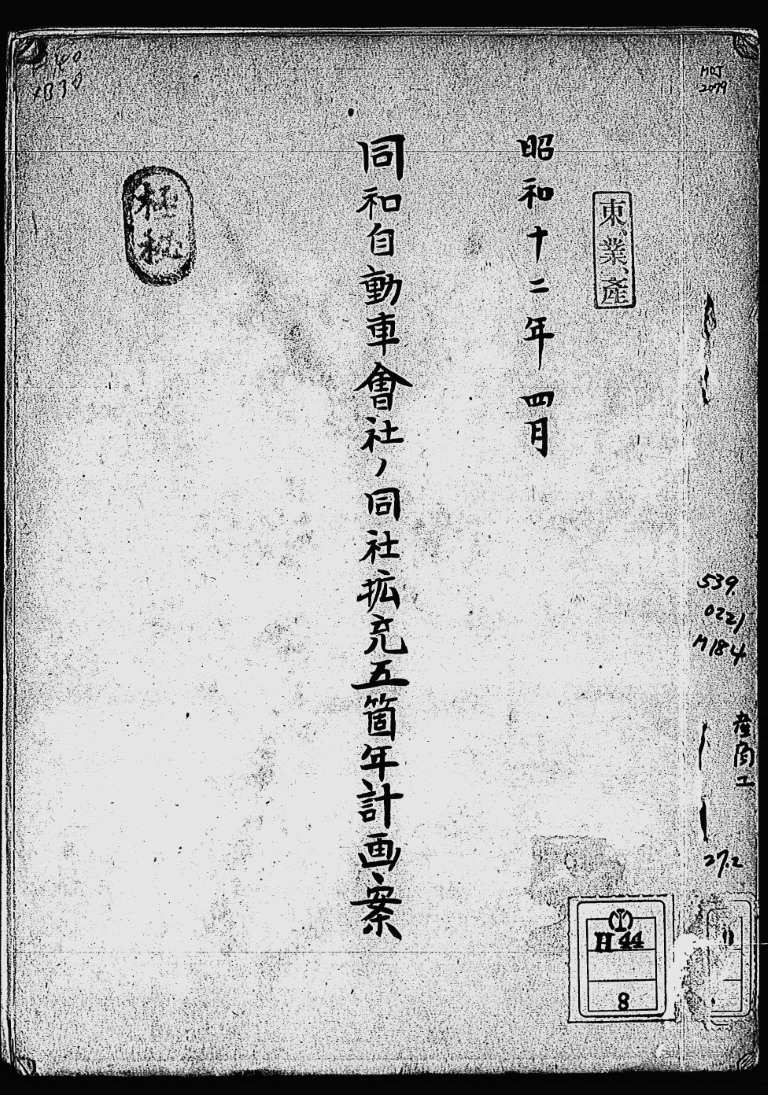 MOJ
2079
東、業、産
昭和十二年四月
同和自動車會社ノ同社拡充五箇年計画案
極秘
539.
0221
M184
産商工
27.2
H 44
8